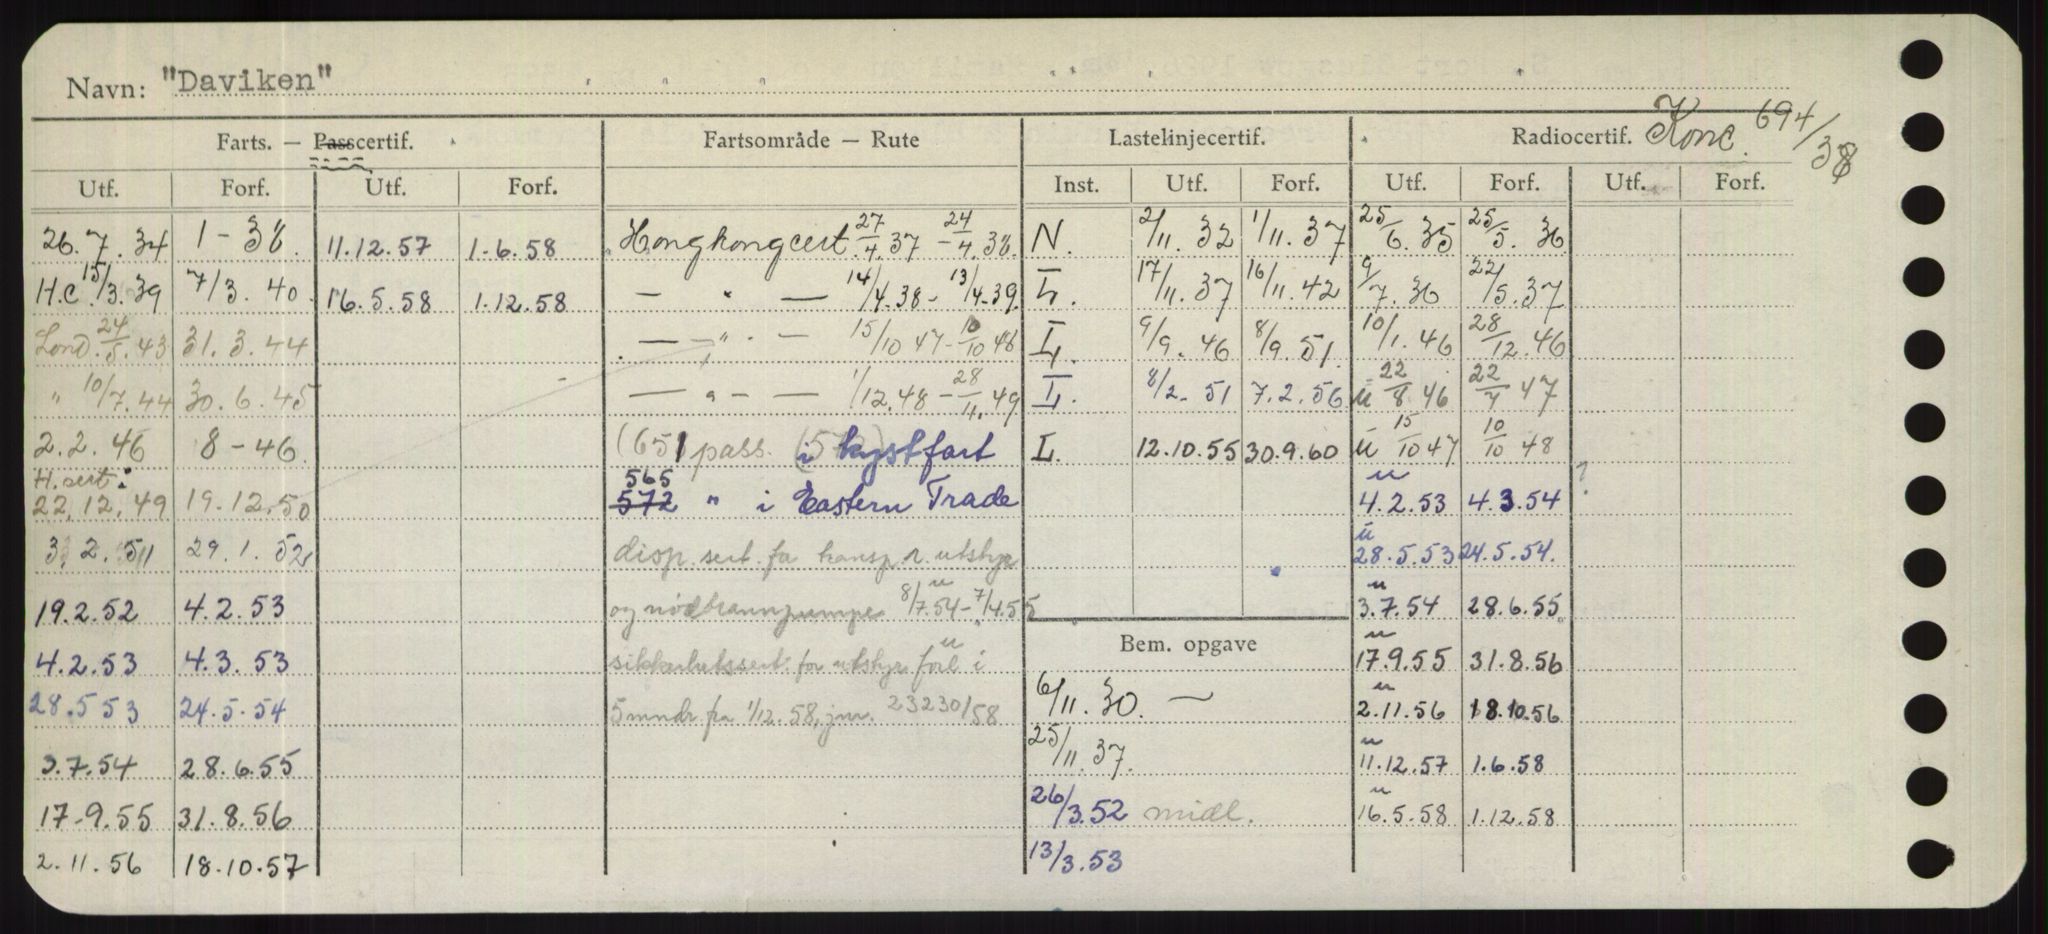 Navn: "Daviken"
Farts. — Passcertif. Fartsområde — Rute Lastelinjecertif. Radiocertif. Konc. 694/38
Utf. Forf. Utf. Forf. Inst. Utf. Forf. Utf. Forf. Utf. Forf.
26.7.34 1-38. 11.12.57 1.6.58 Hongkongcert. 27/4.37 - 24/4.38. N. 2/11.32 1/11.37 25/6.35 25/5.36
H.C. 15/3.39 7/3.40. 16.5.58 1.12.58 — " — 14/4.38 - 13/4.39. L. 17/11.37 16/11.42 9/7.36 22/5.37
Lond. 24/5.43 31.3.44 — " — 15/10 47 - 10/10 48 L. 9/9.46 8/9.51. 10/1.46 28/12.46
" 10/7.44 30.6.45 — " — 1/12.48 - 28/11.49 L. 8/2.51 7.2.56 u 22/8 46 22/7 47
2.2.46 8-46. (651 pass. i kystfart L. 12.10.55 30.9.60 u 15/10 47 10/10 48
H.sert:
22.12.49 19.12.50 565 572 " i Eastern Trade u 4.2.53 4.3.54 ?
3.2.51 29.1.52 disp. sert. fa transp. r. utstyr u 28.5.53 24.5.54.
19.2.52 4.2.53 og nødbrannpumpe 8/7.54 - 7/4.55 u 3.7.54 28.6.55
4.2.53 4.3.53 sikkerhetssert. for utstyr forl. i Bem. opgave u 17.9.55 31.8.56
28.5 53 24.5.54 5 mndr. fra 1/12.58, jnr. 23230/58 6/11.30. — u 2.11.56 18.10.56
3.7.54 28.6.55 25/11.37. u 11.12.57 1.6.58
17.9.55 31.8.56 26/3.52 midl. u 16.5.58 1.12.58
2.11.56 18.10.57 13/3.53